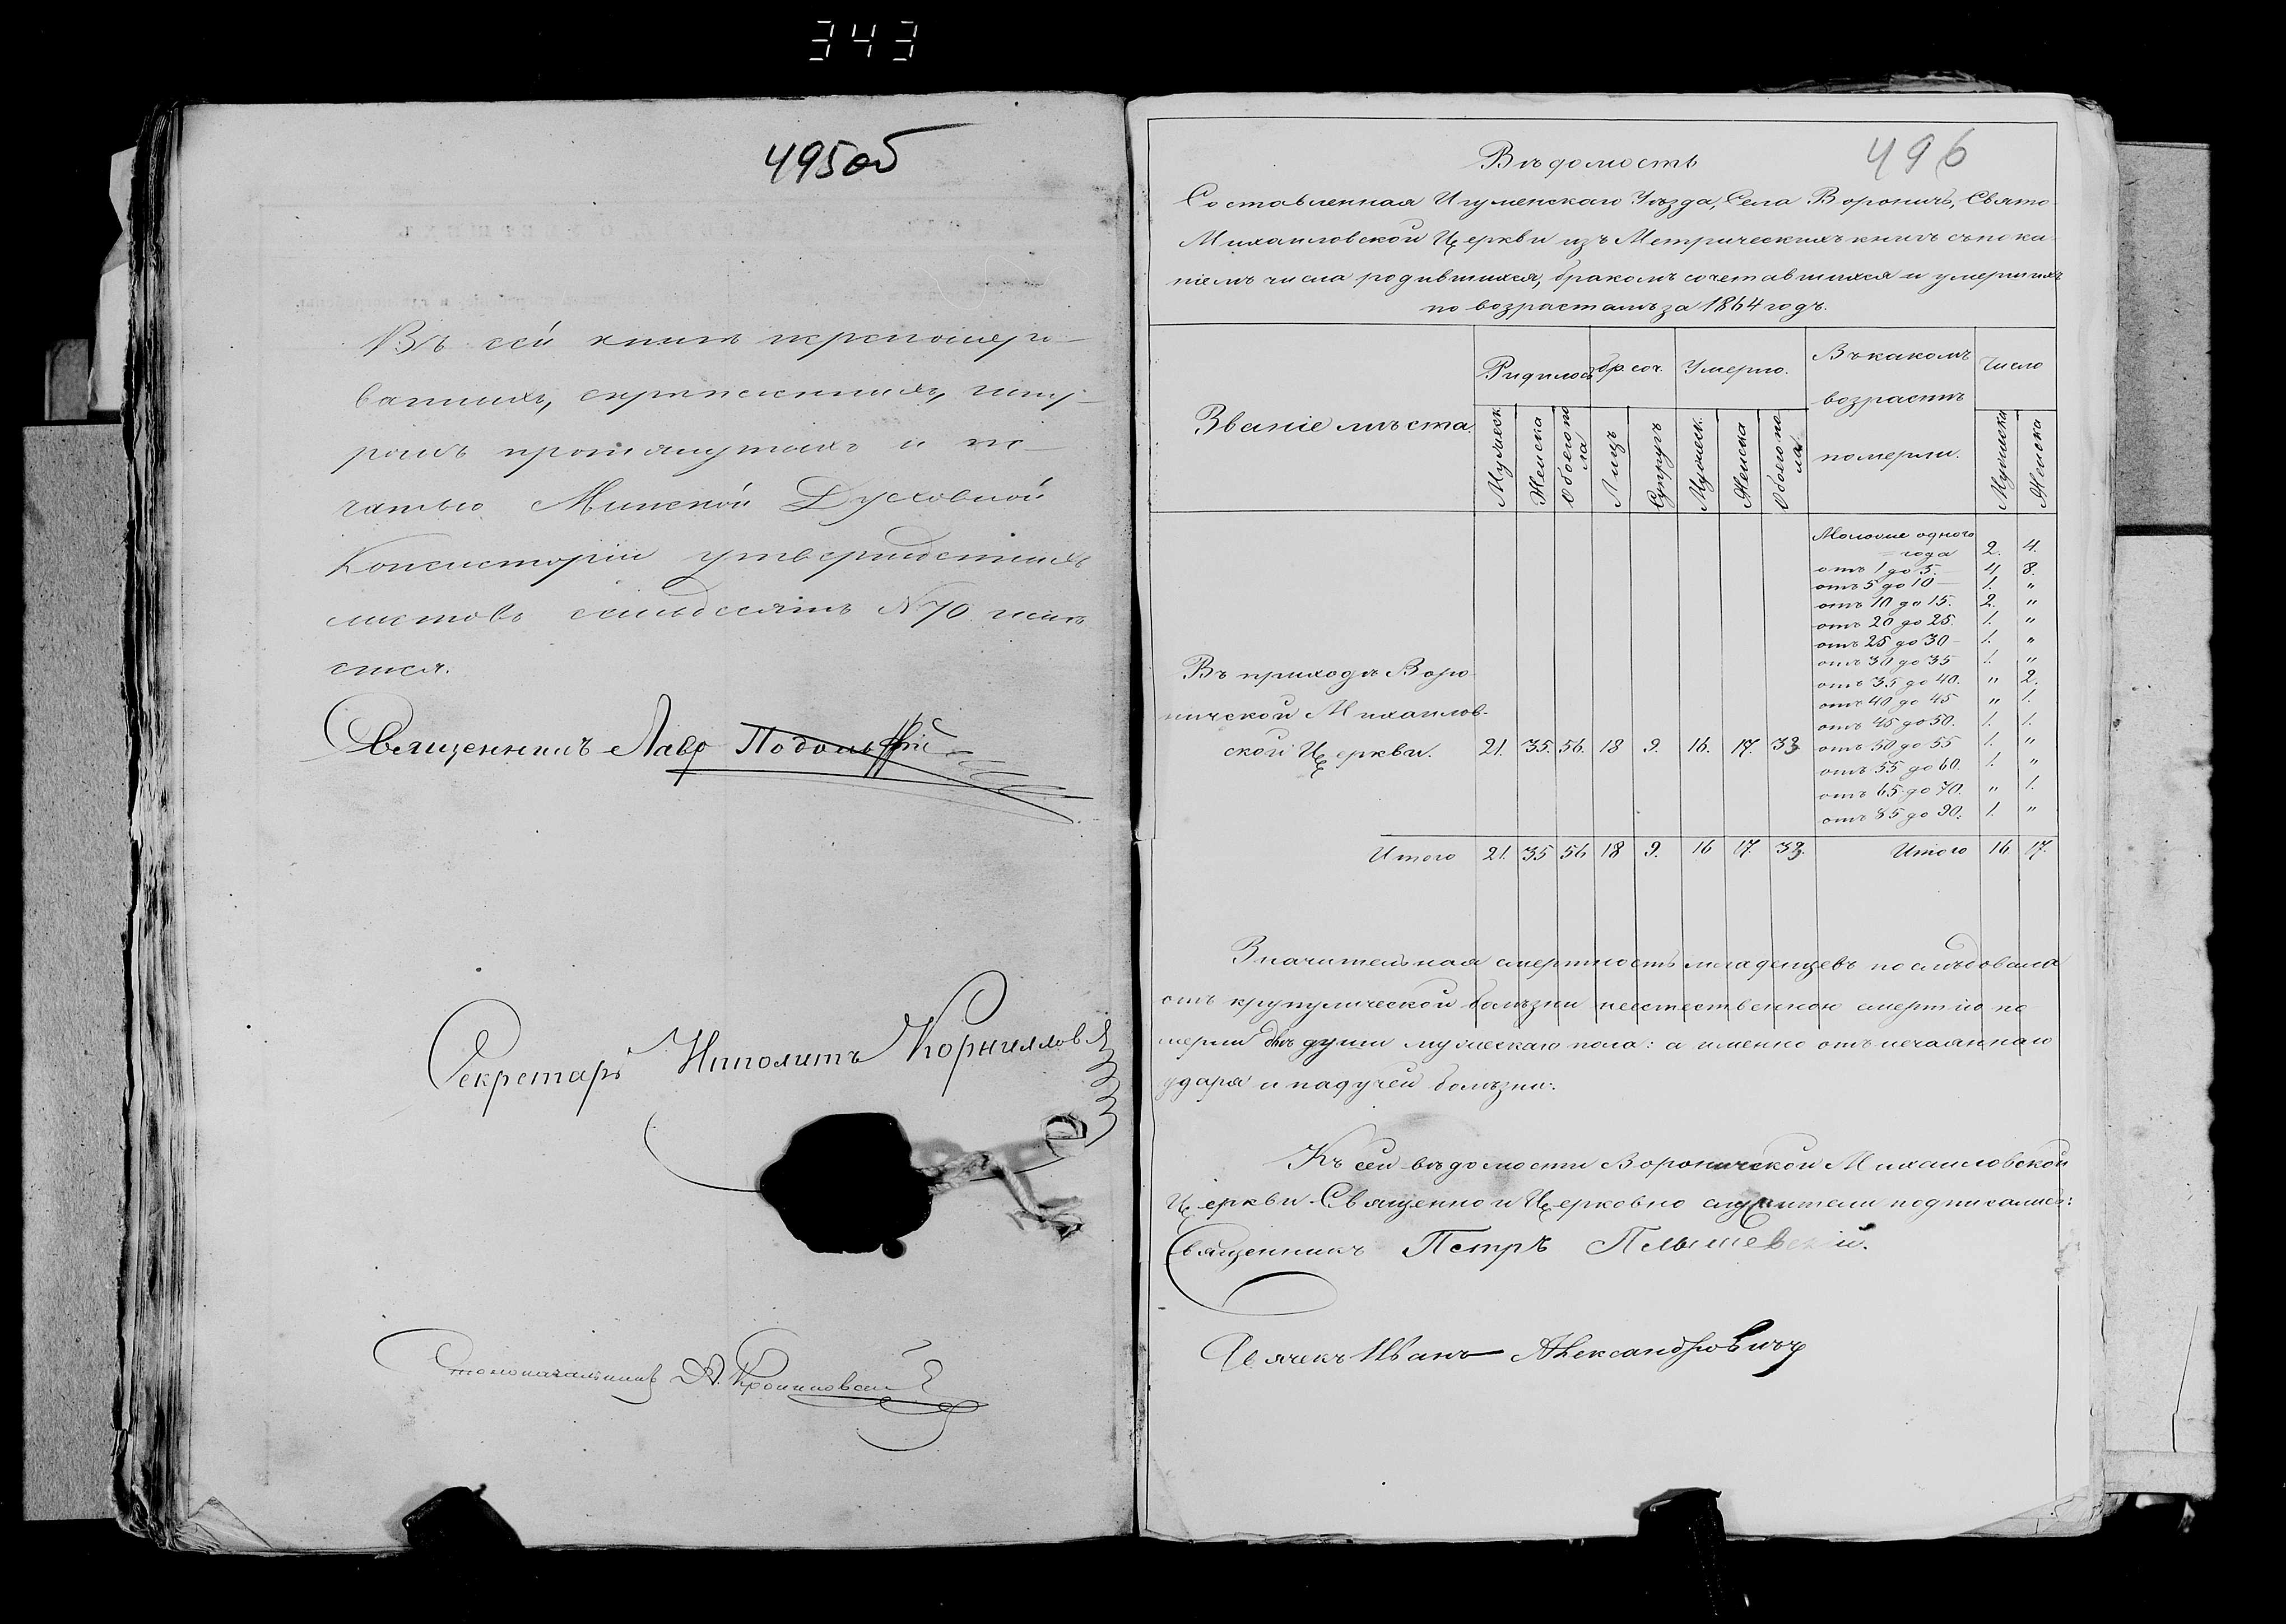 343
495об
Въ сей книгѣ перенумеро-
ванныхъ, скрѣпленныхъ, шну-
ромъ протянутыхъ и пе-
чатью Минской Духовной
Консисторіи утвержденныхъ
листовъ семьдесятъ № 70
Священникъ Лавр
Секретарь Иполитъ Корниллов
Столоначальникъ
496
Вѣдомость
Составленная Игуменскаго Уѣзда, Села Вороничъ, Свято
Михаиловской Церкви изъ Метрическихъ книгъ съ пока
ніемъ числа родившихся, бракомъ сочетавшихся и умершихъ
по возрастамъ за 1864 годъ.
Званіе мѣста.
Родилось
бр. соч.
Умерло.
Въ какомъ
возрастѣ
померли.
Число
Мужеск.
Женска
Обоего по
ла
Лицъ
Супругъ
Мужеск.
Женска
Обоего по
ла
Мужеска
Женска
Моложе одного
года 2. 4.
отъ 1 до 5. 4 8.
отъ 5 до 10 1. "
отъ 10 до 15. 2. "
отъ 20 до 25. 1. "
отъ 25 до 30 1. "
отъ 30 до 35 1. "
отъ 35 до 40. " 2.
отъ 40 до 45 " 1.
отъ 45 до 50. 1. 1.
отъ 50 до 55 1. "
отъ 55 до 60. 1. "
отъ 65 до 70. " 1.
отъ 85 до 90. 1. "
Въ приходѣ Воро-
нической Михаилов-
ской Церкви. 21. 35. 56. 18 9. 16. 17. 33
Итого 21. 35 56 18 9. 16 17. 33. Итого 16 17.
Значительная смертность младенцевъ послѣдовала
отъ болѣзни неестественною смертію по
мерли двѣ души мужескаго пола: а именно отъ нечаяннаго
удара и падучей болѣзни.
Къ сей вѣдомости Воронической Михаиловской
Церкви Священно и Церковно служители подписались:
Священникъ Петръ
Дьячекъ Иванъ Александровичъ